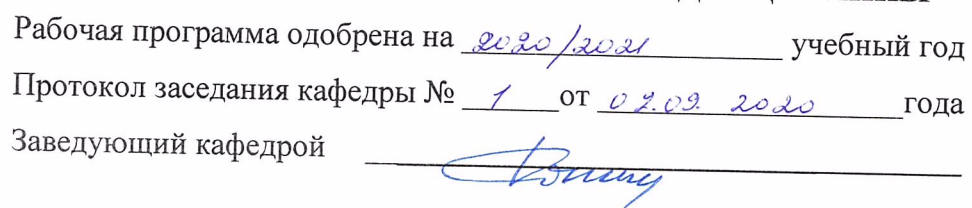 Рабочая программа одобрена на 2020/2021 учебный год
Протокол заседания кафедры № 1 от 07.09. 2020 года
Заведующий кафедрой